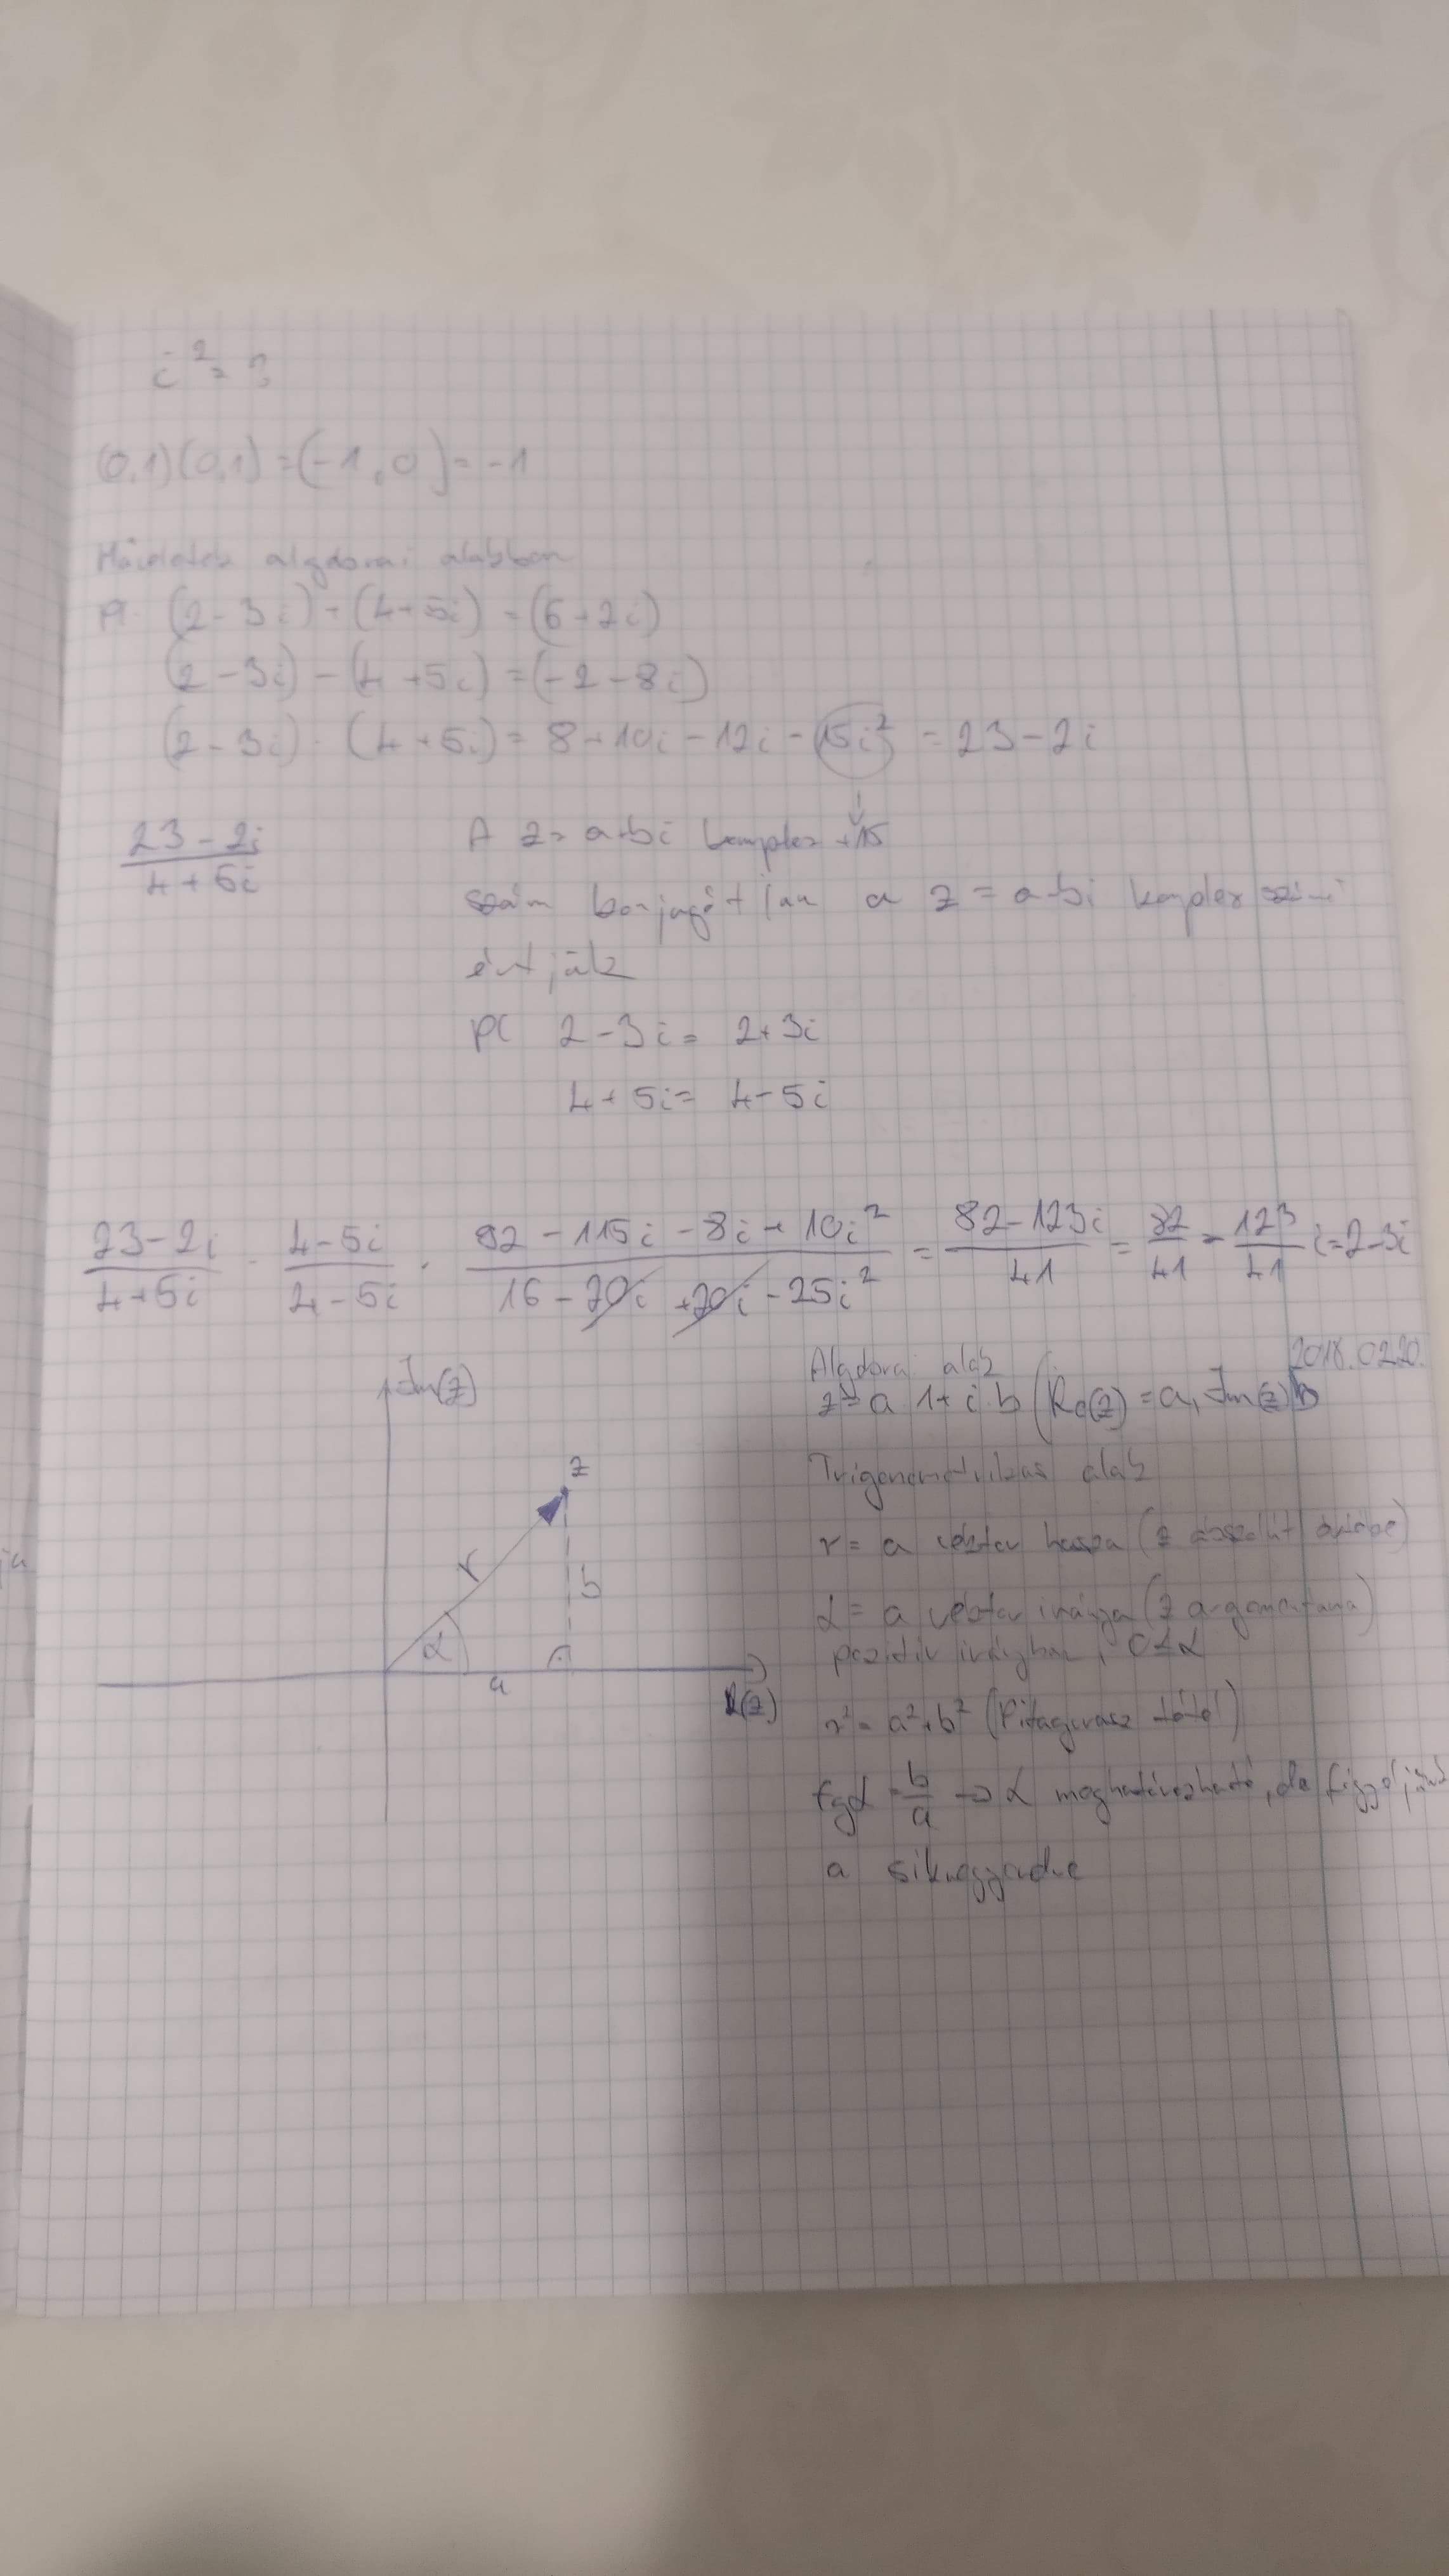 i² = ?
(0,1)(0,1) = (-1,0) = -1
Műveletek algebrai alakban
Pl (2-3i)+(4+5i) = (6+2i)
(2-3i)-(4+5i) = (-2-8i)
(2-3i)·(4+5i) = 8+10i-12i-15i² = 23-2i
+15
(23-2i)/(4+5i)
A z = a+bi komplex
szám konjugáltján a z = a-bi komplex számot
értjük
Pl 2-3i = 2+3i
4+5i = 4-5i
(23-2i)/(4+5i) · (4-5i)/(4-5i) = (92-115i-8i+10i²)/(16-20i+20i-25i²) = (82-123i)/41 = 82/41 - 123/41 i = 2-3i
2018.02.20.
Im(z)
z
r
b
α
a
R(z)
Algebrai alak
z = a·1+i·b (Re(z) = a, Im(z) b
Trigonometrikus alak
r = a vektor hossza (z abszolút értéke)
α = a vektor iránya (z argumentuma)
pozitív irányban, 0≤α
r² = a²+b² (Pitagorasz tétel)
tgα = b/a → α meghatározható, de figyeljünk
a síknegyedre